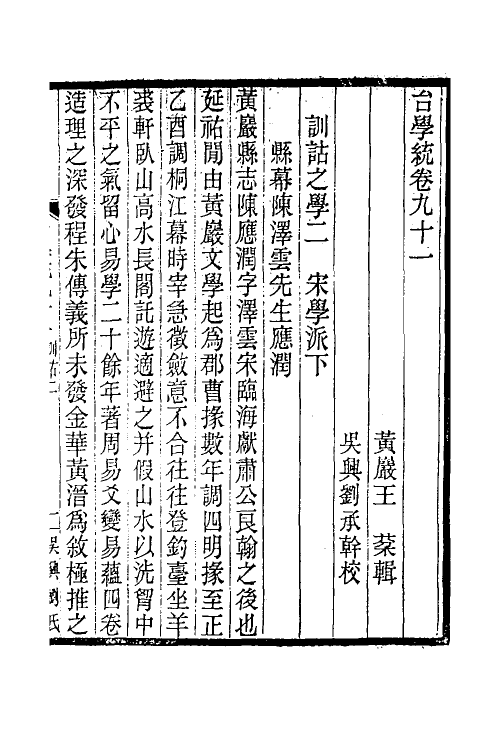 台學統卷九十一
黃巖王 棻輯
吳興劉承幹校
訓詁之學二 宋學派下
縣幕陳澤雲先生應潤
黃巖縣志陳應潤字澤雲宋臨海獻肅公良翰之後也
延祐閒由黃巖文學起爲郡曹掾數年調四明掾至正
乙酉調桐江幕時宰急徵斂意不合往往登釣臺坐羊
裘軒臥山高水長閣託遊適避之并假山水以洗胷中
不平之氣留心易學二十餘年著周易爻變易蘊四卷
造理之深發程朱傳義所未發金華黃溍爲敘極推之